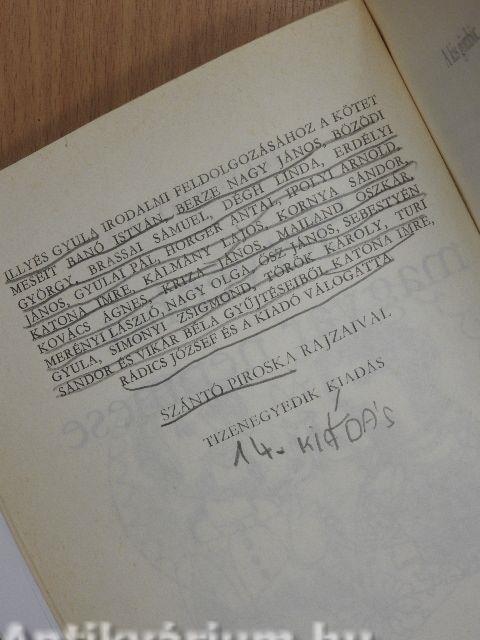 ILLYÉS GYULA IRODALMI FELDOLGOZÁSÁHOZ A KÖTET
MESÉIT BANÓ ISTVÁN, BERZE NAGY JÁNOS, BÖZÖDI
GYÖRGY, BRASSAI SÁMUEL, DÉGH LINDA, ERDÉLYI
JÁNOS, GYULAI PÁL, HORGER ANTAL, IPOLYI ARNOLD,
KATONA IMRE, KÁLMÁNY LAJOS, KORNYA SÁNDOR,
KOVÁCS ÁGNES, KRIZA JÁNOS, MAILAND OSZKÁR,
MERÉNYI LÁSZLÓ, NAGY OLGA, ŐSZ JÁNOS, SEBESTYÉN
GYULA, SIMONYI ZSIGMOND, TÖRÖK KÁROLY, TURI
SÁNDOR ÉS VIKÁR BÉLA GYŰJTÉSEIBŐL KATONA IMRE,
RÁDICS JÓZSEF ÉS A KIADÓ VÁLOGATTA
SZÁNTÓ PIROSKA RAJZAIVAL
TIZENEGYEDIK KIADÁS
14. KIADÁS
Antikvárium.hu